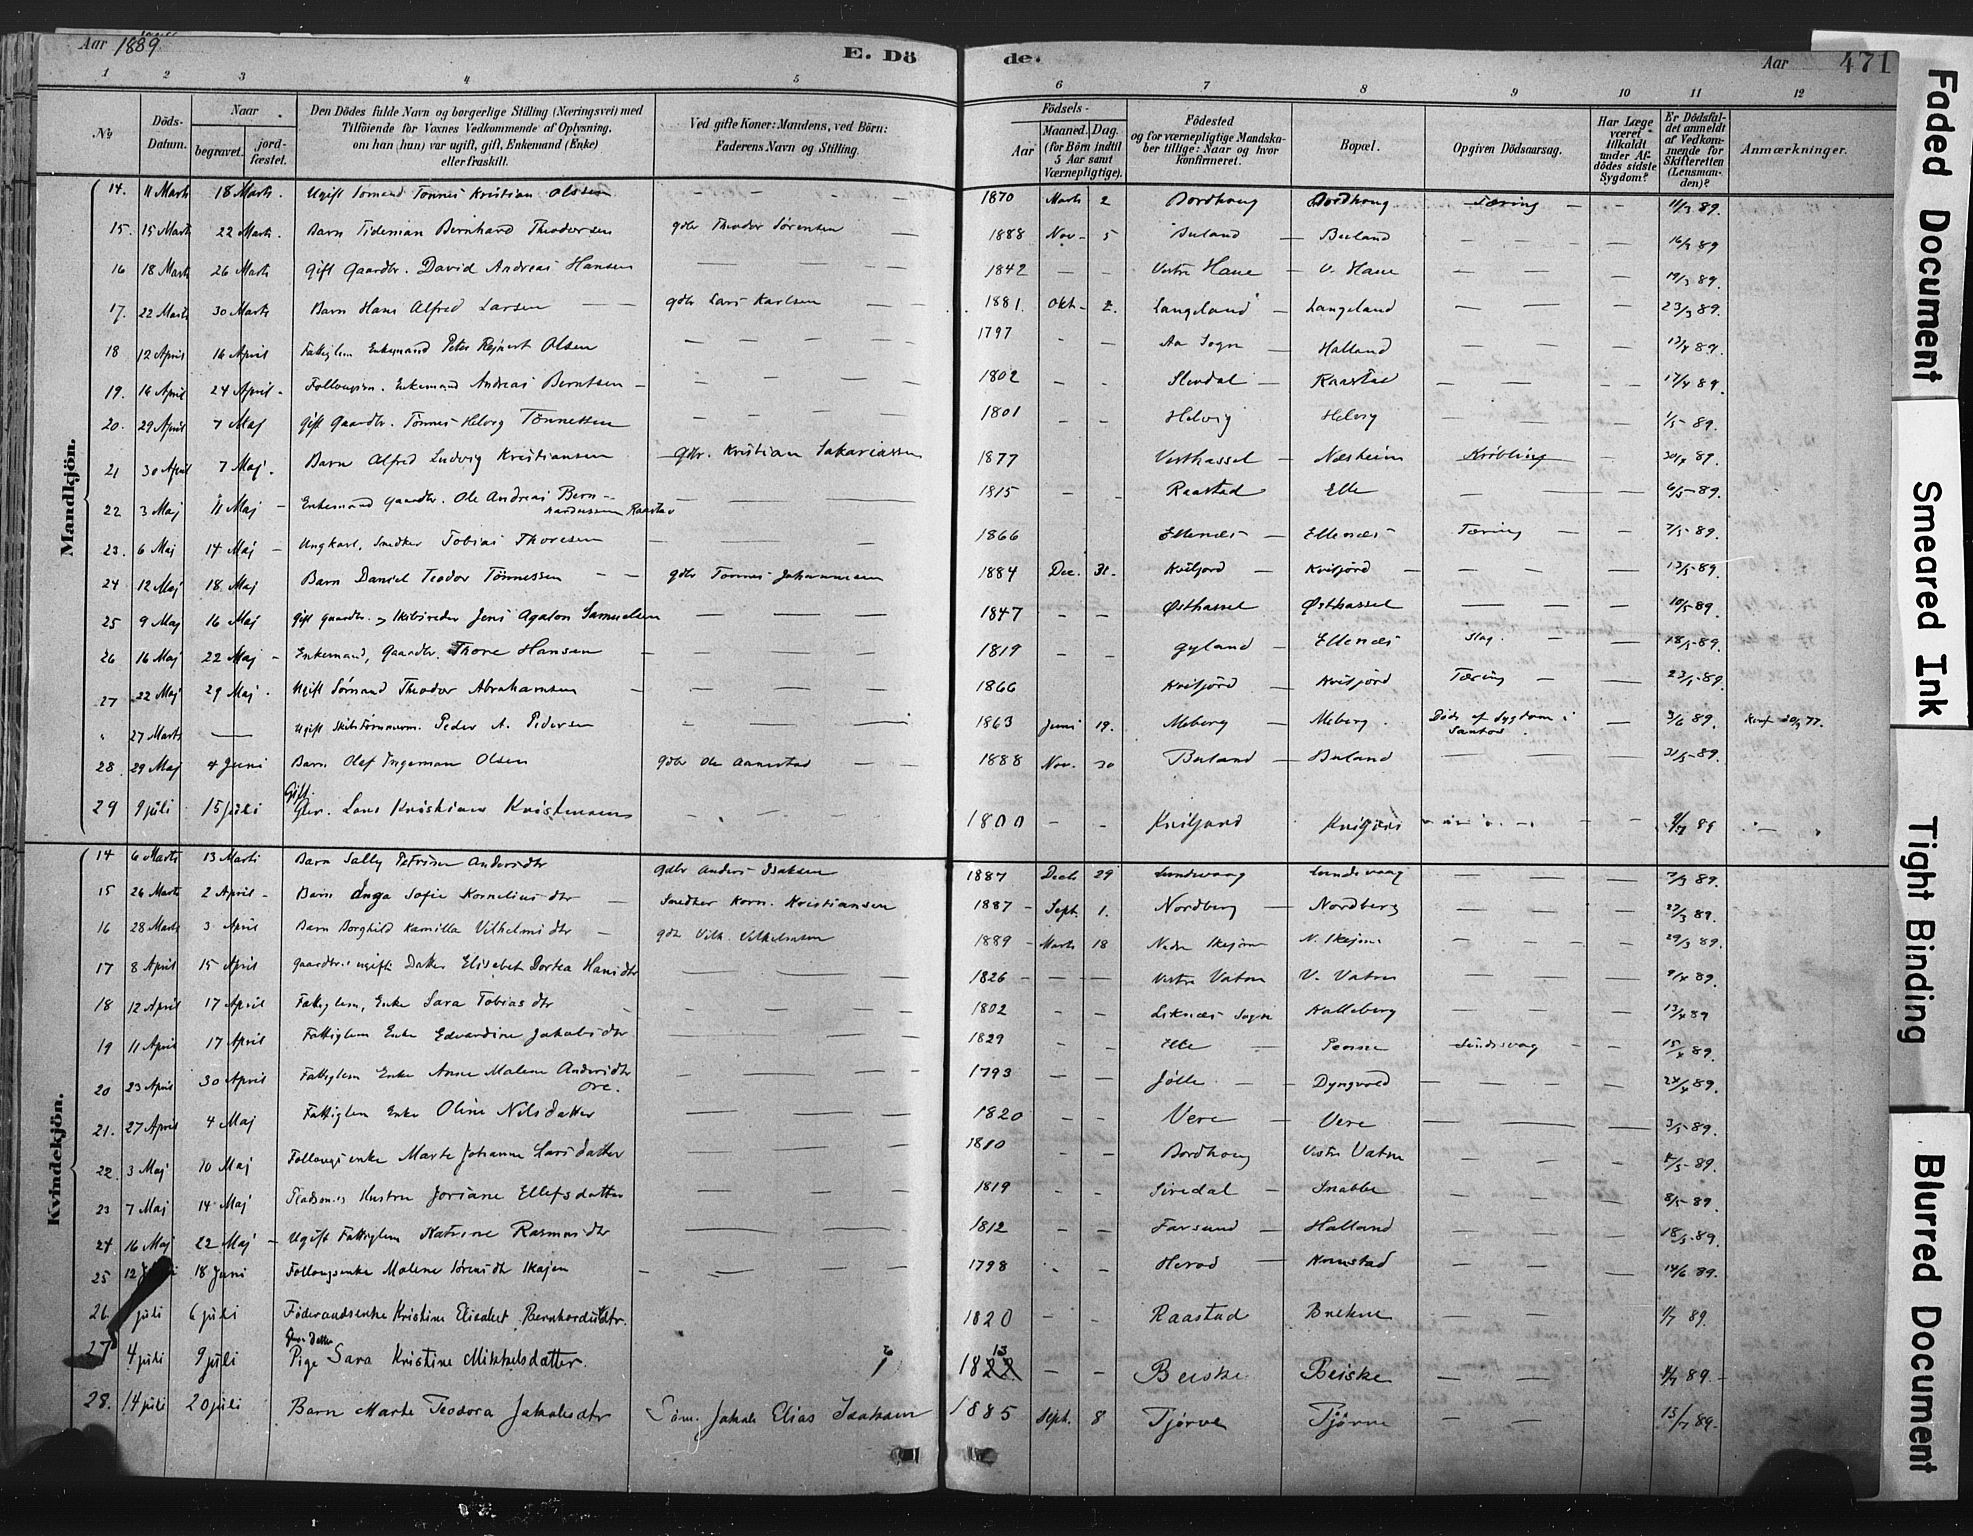 Aar 1889
E. Dö
de.
Aar 471
1 2 3 4 5 6 7 8 9 10 11 12
No
Döds-Datum.
Naar
begravet.
jord-fæstet.
Den Dödes fulde Navn og borgerlige Stilling (Næringsvei) med
Tilföiende for Voxnes Vedkommende af Oplysning,
om han (hun) var ugift, gift, Enkemand (Enke)
eller fraskilt.
Ved gifte Koner: Mandens, ved Börn:
Faderens Navn og Stilling.
Födsels-
Aar
Maaned. Dag.
(for Börn indtil
5 Aar samt
Værnepligtige).
Födested
og for værnepligtige Mandska-
ber tillige: Naar og hvor
konfirmeret.
Bopæl.
Opgiven Dödsaarsag.
Har Læge
været
tilkaldt
under Af-
dödes sidste
Sygdom?
Er Dödsfal-
det anmeldt
af Vedkom-
mende for
Skifteretten
(Lensman-
den)?
Anmærkninger.
Mandkjön.
14. 11 Marts 18 Marts. Ugift Sömand Tönnes Kristian Olssen — — 1870 Marts 2 Bordhoug Bordhoug Tæring — — 11/3 89.
15. 15 Marts 22 Marts. Barn Tideman Bernhard Theodorsen gdbr Theodor Sörensen — 1888 Nov- 5 Buland — Buland — — — 16/3 89
16 18 Marts 26 Marts Gift Gaardbr. David Andreas Hansen — — — 1842 — — Vestre Haue — V. Haue — — — 19/3 89.
17. 22 Marts 30 Marts Barn Hans Alfred Larsen — — gdbr Lars Karlsen — — 1881. Okt- 2. Langeland — Langeland — — — 23/3 89.
18 12 April 16 April Fattiglem Enkemand Peter Rejnert Olsen — — — 1797 — — Aa Sogn — Halland — — — 13/4 89.
19. 16 April 24 April - Follougsm. Enkemand Andreas Berntsen — — — — 1802 — — — Raastad — — — 17/4 89.
20. 29 April 7 Maj Gift Gaardbr. Tönnes Helvig Tönnessen — — — 1801 — — Helvig Helvig — — — 1/5-89.
21 30 April 7 Maj. Barn Alfred Ludvig Kristiansen Gdbr. Kristian Sakariassen 1877 Vesthassel — Næsheim — 30/4 89.
22 3 Maj 11 Maj — Enkemand Gaardbr. Ole Andreas Bern-
hardussen Raastad — — — 1815 — — Raastad Elle — — — 6/5-89.
23. 6 Maj 14 Maj — Ungkarl, Snedker Tobias Thoresen — — — — 1866 Ellenæs — Ellenæs Tæring — — 7/5-89.
24 12 Maj 18 Maj Barn Daniel Teodor Tönnessen — — gdbr Tönnes Johannesen 1884 Dec. 31. Kviljord — Kviljord — — — — 13/5-89.
25 9 Maj 16 Maj Gift gaardbr. og Skibsreder Jens Agaton Samuelsen — — — 1847 — — Østhassel Østhassel — — — 10/5-89.
26 16 Maj 22 Maj — Enkemand, Gaardbr. Thore Hansen — — — — 1819 — — Gyland — Ellenæs Slag. — — 18/5-89.
27 22 Maj 29 Maj. Ugift Sömand Theodor Abrahamsen — — — — 1866 Kviljord — Kviljord Tæring — — 23/5-89.
" 27 Marts — Ugift Skibstömmerm. Peder A. Pedersen — — — 1863 Juni 19. Meberg — Meberg. Döde af Sygdom i
Santos. — 3/6 89.
28. 29 Maj 4 Juni Barn Olaf Ingeman Olsen gdbr Ole Aanestad — — 1888 Nov. 30 Buland — Buland — — — 31/5-89.
29 9 juli 15 juli Gift
Gbr. Lars Kristian Kristensen — — — 1800 — — Kviljord Kviljord — 9/7 89
Kvindekjön.
14 6 Marts 13 Marts Barn Sally Petrine Andersdtr gdbr Anders Isaksen 1887 Decb 29 Lundevaag Lundevaag — — — 7/3 89.
15 26 Marts 2 April - Barn Inga Sofie Kornelius dtr — Snedker Korn. Kristiansen 1887 - Sept. 1. Nordberg — Nordberg — — — 27/3 89.
16 28 Marts 3 April Barn Borghild Kamilla Vilhelms dtr — gdbr Vilh. Vilhelmsen 1889 - Marts 18 Nedre Skejom N. Skejom — — — 29/3 89.
17 8 April 15 April Gaardbr.s ugifte Datter Elisabet Dortea Hansdtr — — — 1826 — — — Vestre Vatne V. Vatne — — — 9/4 89.
18 12 April 17 April Fattiglem, Enke Sara Tobias dtr — — — — 1802 — — Liknæs Sogn Kalleberg — — — 13/4 89
19 11 April 17 April Fattiglem Enke Edvardine Jakobsdtr — — — 1829 — — Elle — Penne — — 15/4 89.
20 23 April 30 April Fattiglem Enke Anne Malene Andersdtr
Ore. — — — 1793 — — Jölle — Dyngvold — — — — 24/4 89.
21. 27 April 4 Maj Fattiglem Enke Oline Nilsdatter — — — 1820 — — Vere — Vere — — — — 3/5-89.
22. 3 Maj 10 Maj Follougsenke Marte Johanne Larsdatter — — — 1810 — — Bordhoug Vestre Vatne — — — /5-89.
23 7 Maj 14 Maj Hustru Joriane Ellefsdatter — — — 1819 — — Siredal — Snabbe — — — 8/5-89.
24. 16 Maj 22 Maj — Ugift Fattiglem Katrine Rasmus dtr — — — 1812 — — Farsund — Halland — — — 18/5-89.
25 12 18 Juni Follougsenke Malene Sörensdtr Skejom — — — — 1798 Herad — — — — 14/6 89.
26. juli 6 juli Föderaadsenke Kristine Elisabet Bernhardusdtr. 1820 — — Raastad Brekne — — — /7 89.
27 4 juli 9 juli Gbr datter
Pige Sara Kristine Mikkelsdatter. 13
1822 — — Beiske Beiske — — — 4/7 89.
28. 14 juli 20 juli Barn Marte Teodora Jakobsdtr Söm. Jakob Elias Isaksen 1885 Sept. 8 Tjörve Tjörve — — — 15/7 89.
Faded Document
Smeared Ink
Tight Binding
Blurred Document